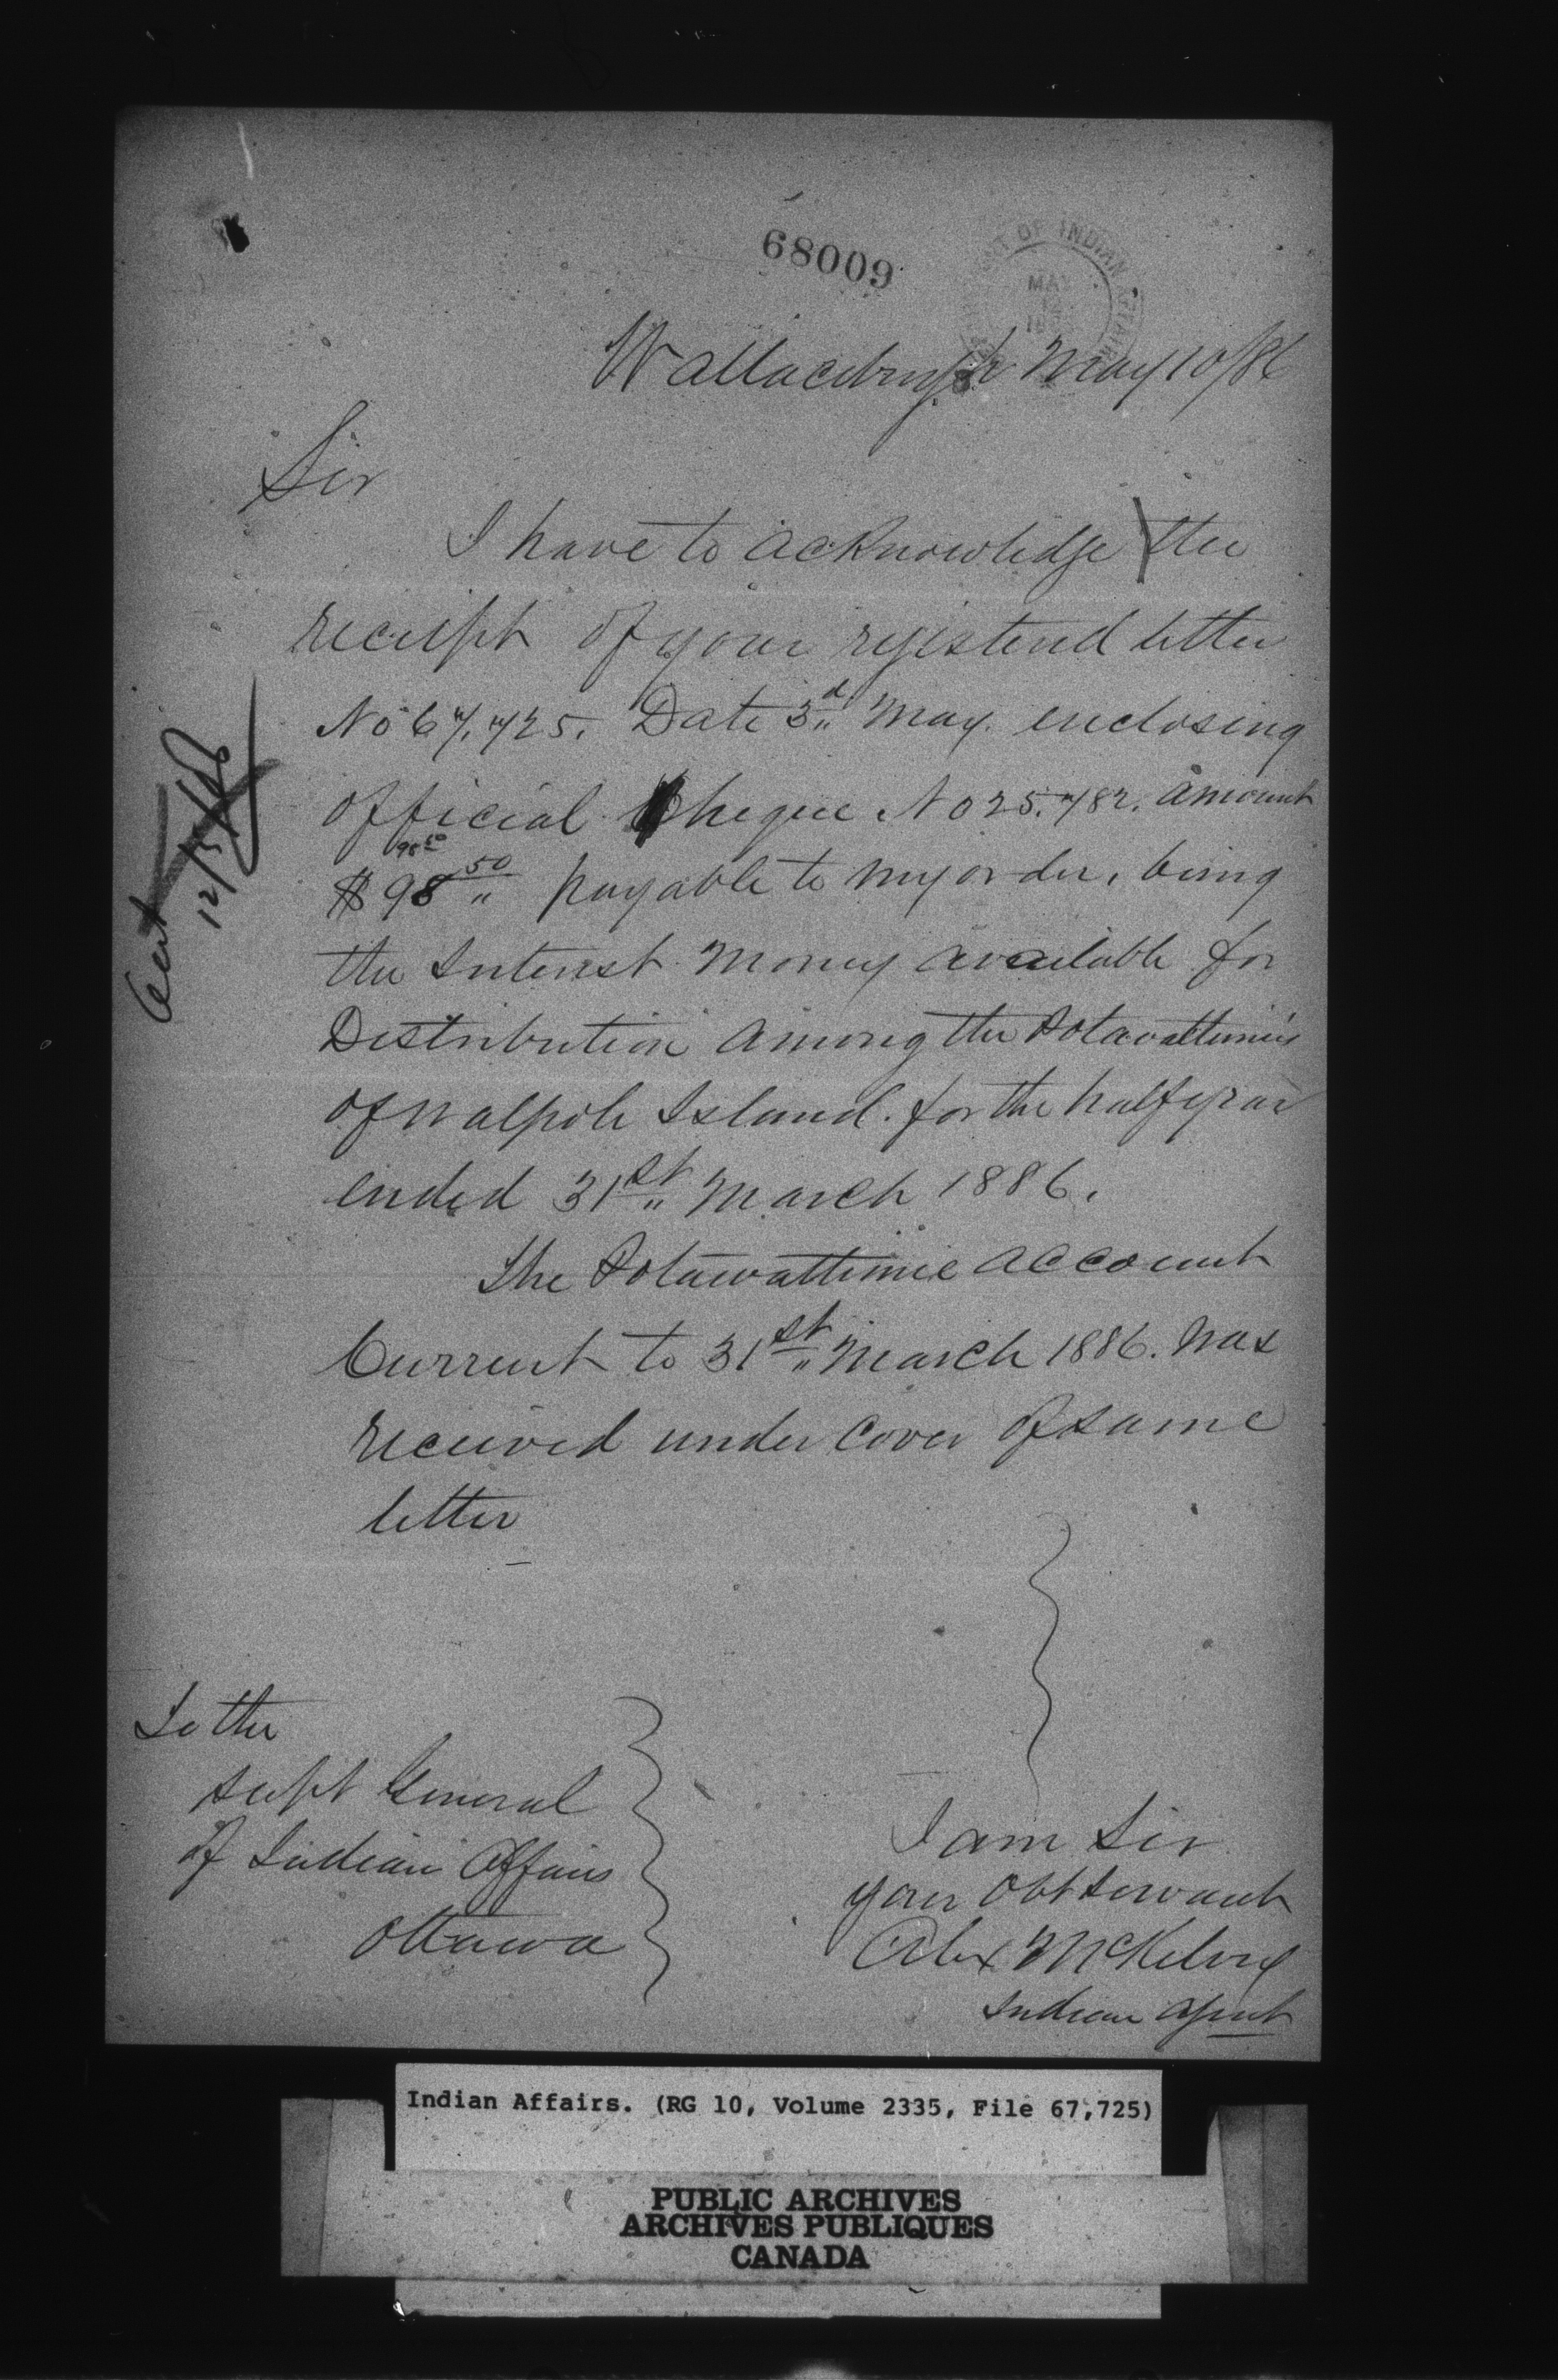 68009
OF INDIAN AFFAIRS
MAY
Wallaceburgh May 10/86
Sir
I have to acknowledge the
receipt of your registerd letter
No 67,725. Date 3d May. enclosing
official Cheque No 25.782. amount
98 50
$98 50 payable to my order, being
the Interest Money available for
Distribution among the Potawattimies
of Walpole Island. for the half year
ended 31st March 1886.
The Potawattimie account
Current to 31st March 1886. was
received under cover of same
letter
12/5/86
To the
Supt General
of Indian Affairs
Ottawa
I am Sir
your Obt Servant
Alex McKelvey
Indian Agent
Indian Affairs. (RG 10, Volume 2335, File 67,725)
PUBLIC ARCHIVES
ARCHIVES PUBLIQUES
CANADA